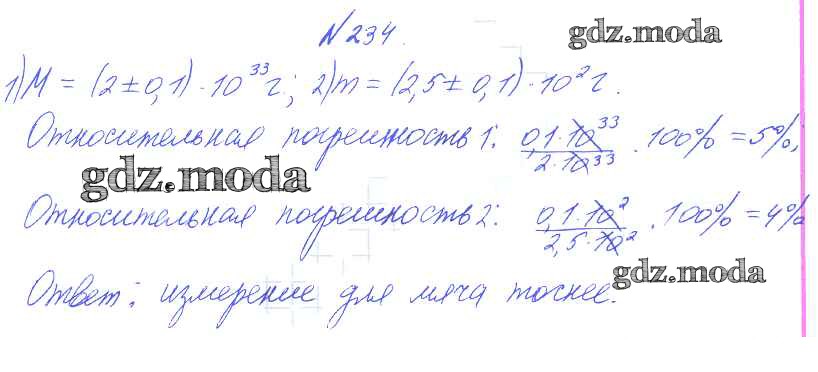 № 234.
gdz.moda
1) M = (2 ± 0,1) · 10³³ г; 2) m = (2,5 ± 0,1) · 10² г.
Относительная погрешность 1: 0,1 · 10³³ / 2 · 10³³ · 100% = 5%;
gdz.moda
Относительная погрешность 2: 0,1 · 10² / 2,5 · 10² · 100% = 4%
gdz.moda
Ответ: измерение для мяча точнее.